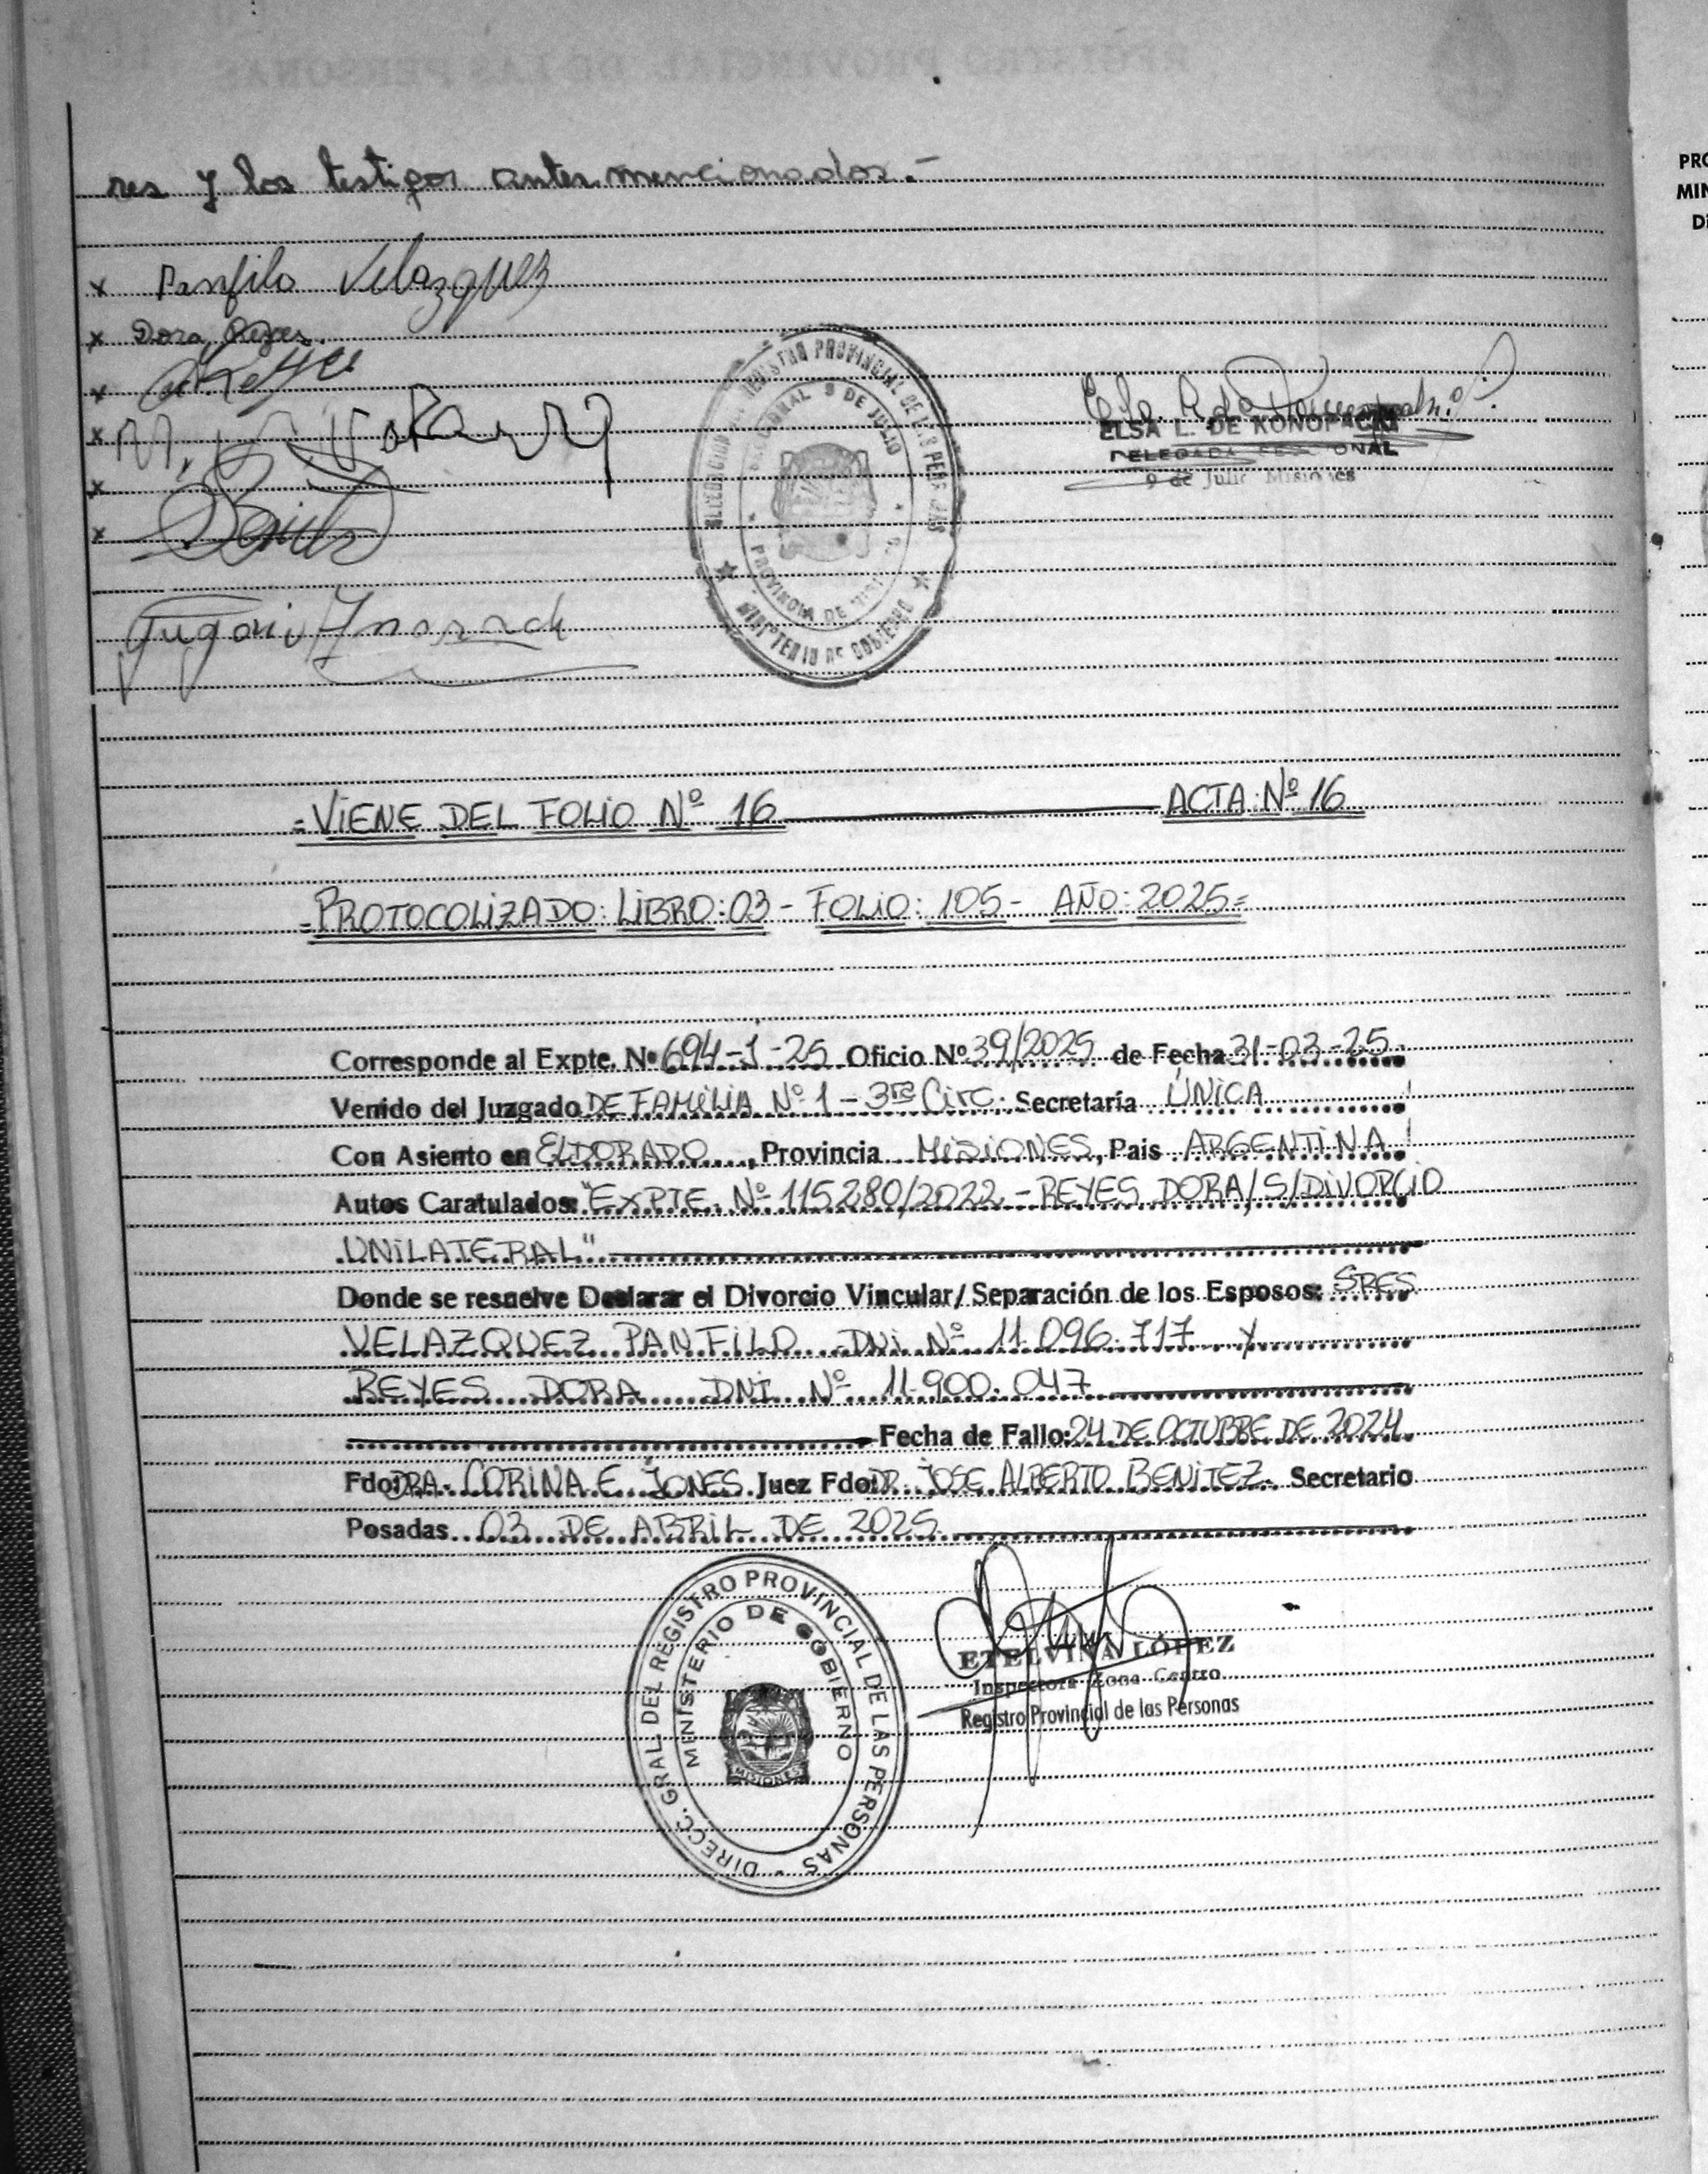 REGISTRO PROVINCIAL DE LAS PERSONAS
res y los testigos antes mencionados.-
x Panfilo Velazquez
x Dora Reyes
x
x
x
x
DIRECCION DEL REGISTRO PROVINCIAL DE LAS PERSONAS
9 DE JULIO
PROVINCIA DE
MINISTERIO DE GOBIERNO
ELSA L. DE KONOPACKI
DELEGADA
9 de Julio Misiones
PRO
MIN
D
=VIENE DEL FOLIO Nº 16 ACTA Nº 16
=PROTOCOLIZADO: LIBRO: 03 - FOLIO: 105 - AÑO: 2025=
Corresponde al Expte. Nº 694-J-25 Oficio Nº 39/2025 de Fecha 31-03-25
Venido del Juzgado DE FAMILIA Nº 1 - 3ra Circ. Secretaría ÚNICA
Con Asiento en ELDORADO, Provincia MISIONES, Pais ARGENTINA
Autos Caratulados: "EXPTE. Nº 115280/2022 - REYES DORA/S/DIVORCIO
UNILATERAL"
Donde se resuelve Declarar el Divorcio Vincular/Separación de los Esposos: SRES
VELAZQUEZ PANFILO DNI Nº 11.096.717 y
REYES DORA DNI Nº 11.900.047
Fecha de Fallo: 24 DE OCTUBRE DE 2024
Fdo: DRA. CORINA E. JONES Juez Fdo: DR. JOSE ALBERTO BENITEZ Secretario
Posadas 03 DE ABRIL DE 2025
DIRECC. GRAL. DEL REGISTRO PROVINCIAL DE LAS PERSONAS
MINISTERIO DE GOBIERNO
MISIONES
ETELVINA LÓPEZ
Inspectora Zona Centro
Registro Provincial de las Personas